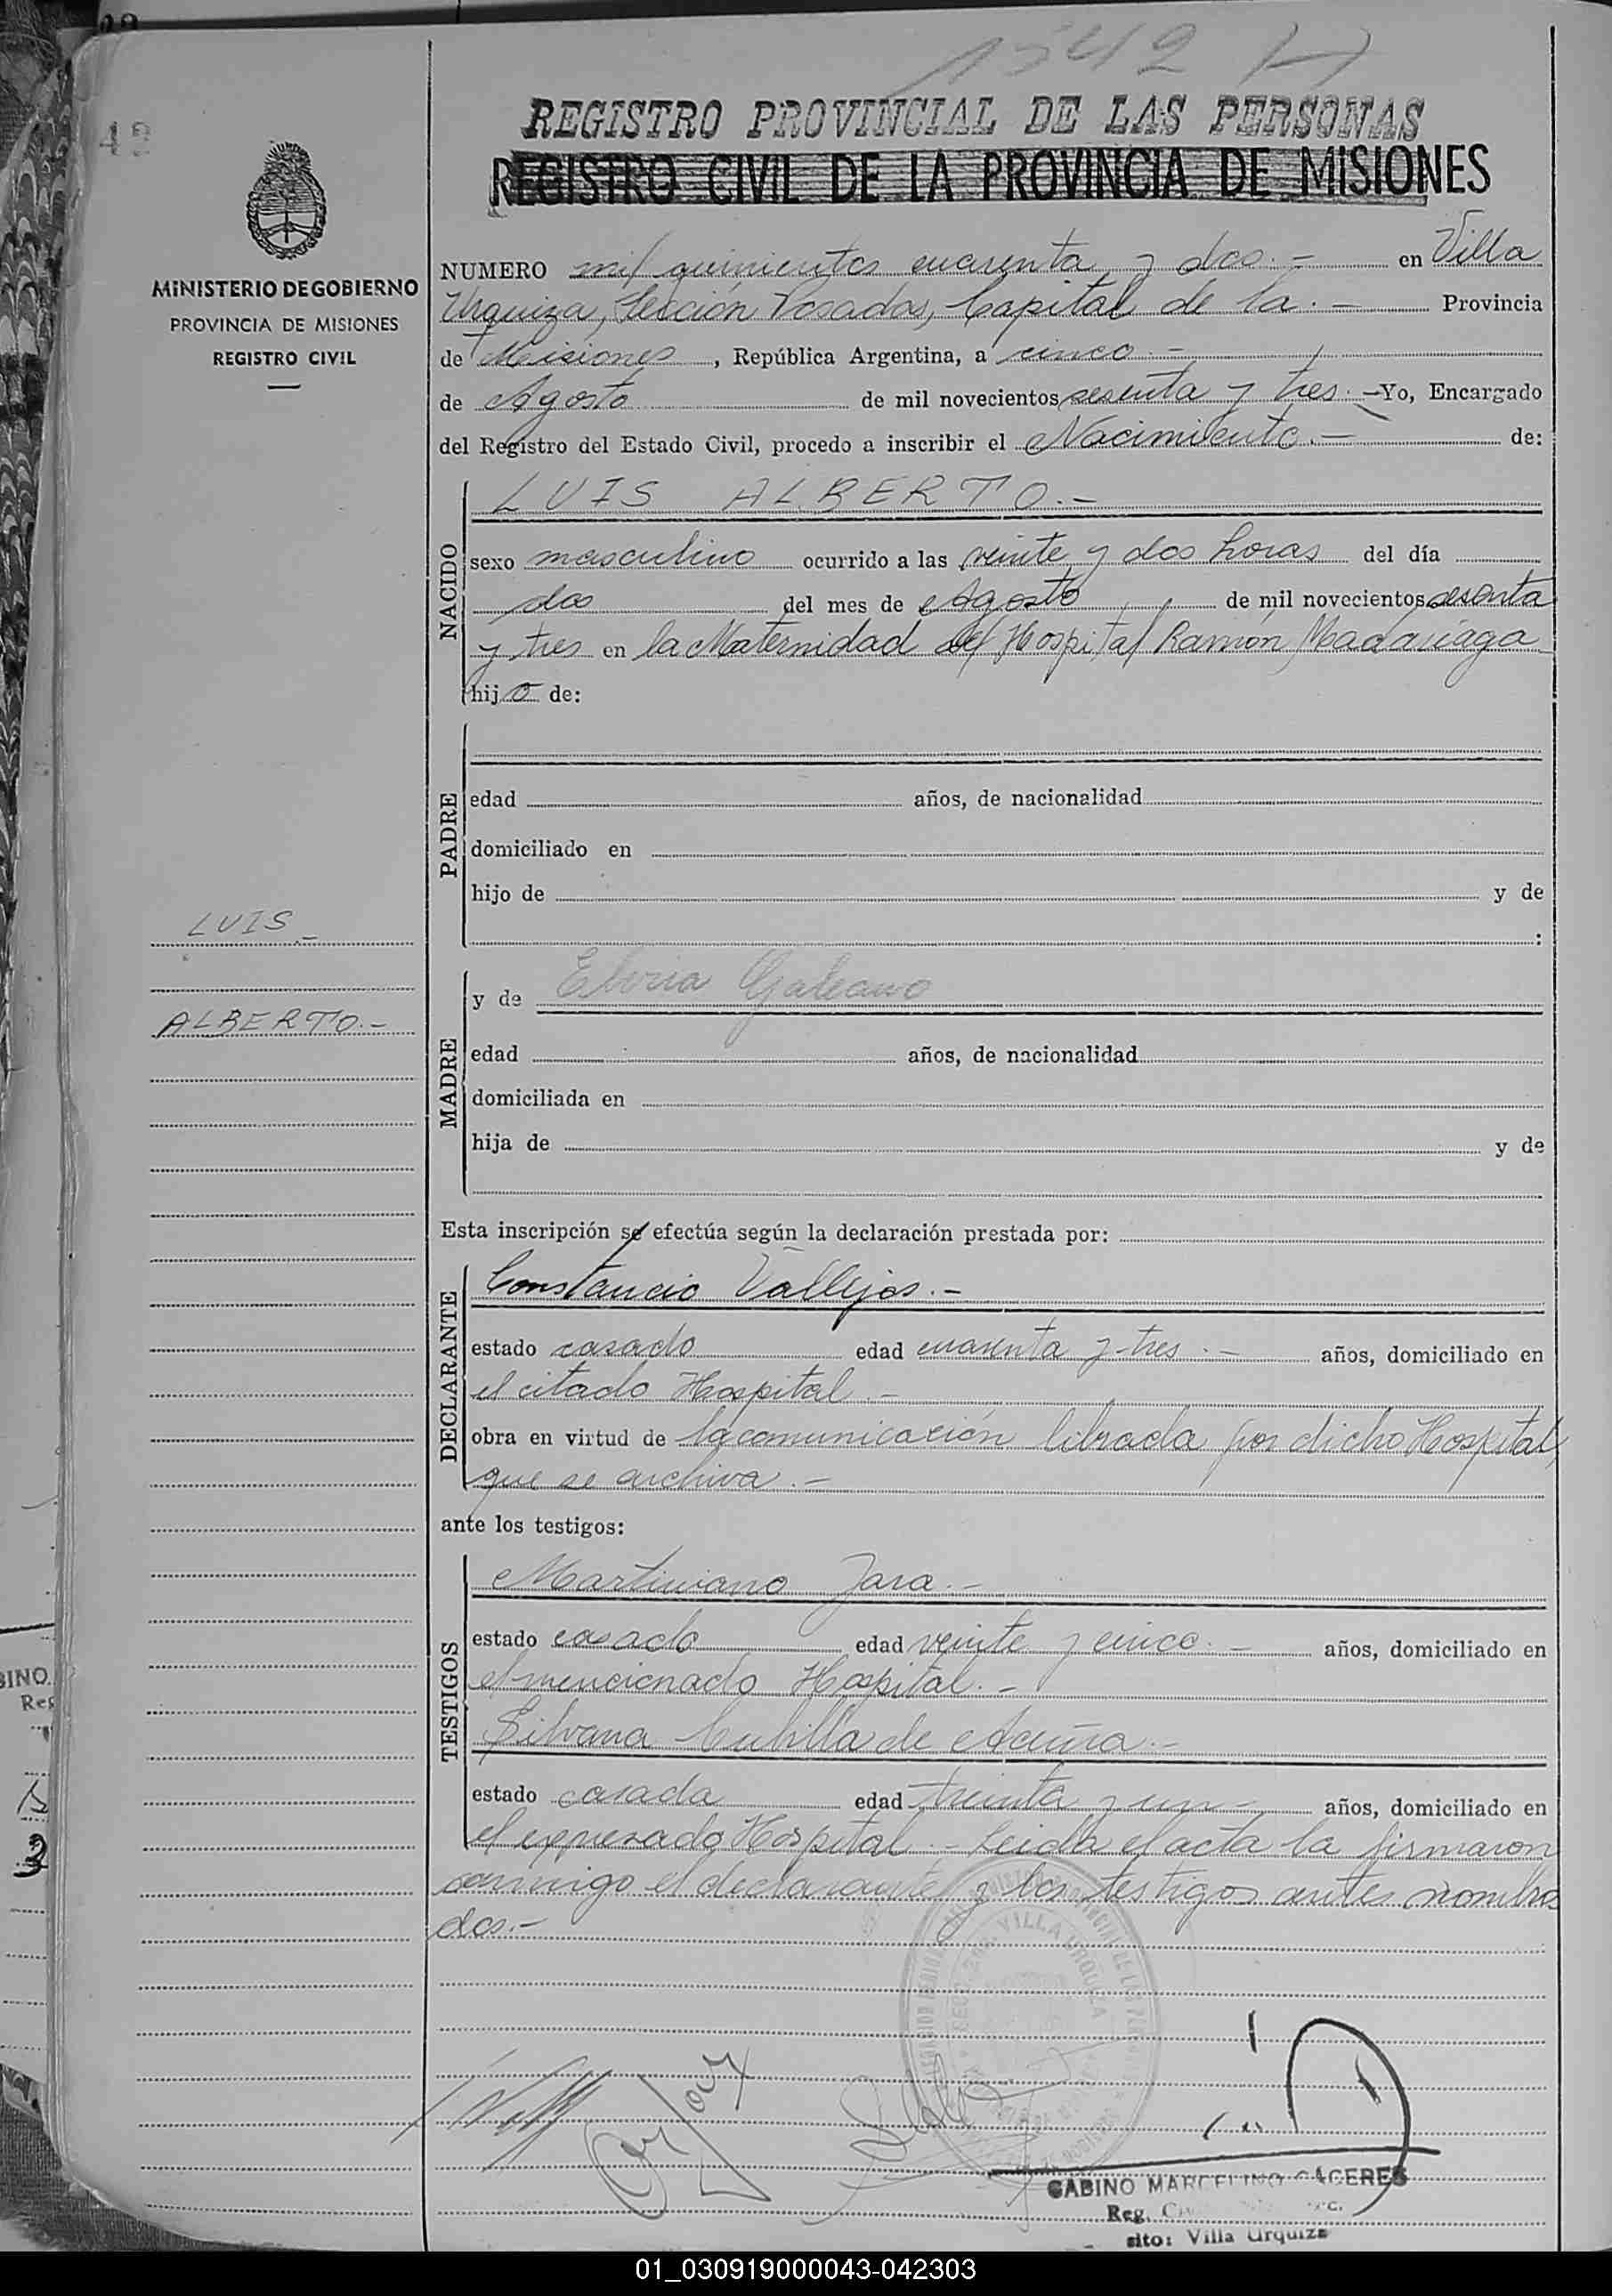 42
1542 H
REGISTRO PROVINCIAL DE LAS PERSONAS
REGISTRO CIVIL DE LA PROVINCIA DE MISIONES
MINISTERIO DE GOBIERNO
PROVINCIA DE MISIONES
REGISTRO CIVIL
NUMERO mil quinientos cuarenta y dos.- en Villa
Urquiza, Sección Posadas, Capital de la.- Provincia
de Misiones, República Argentina, a cinco.-
de Agosto de mil novecientos sesenta y tres.- Yo, Encargado
del Registro del Estado Civil, procedo a inscribir el Nacimiento.- de:
NACIDO
LUIS ALBERTO.-
sexo masculino ocurrido a las veinte y dos horas del día
dos del mes de Agosto de mil novecientos sesenta
y tres en la Maternidad del Hospital Ramón Madariaga
hijo de:
PADRE
edad años, de nacionalidad
domiciliado en
hijo de y de
:
LUIS.-
ALBERTO.-
MADRE
y de Elviria Galeano
edad años, de nacionalidad
domiciliada en
hija de y de
Esta inscripción se efectúa según la declaración prestada por:
DECLARANTE
Constancio Vallejos.-
estado casado edad cuarenta y tres.- años, domiciliado en
el citado Hospital.-
obra en virtud de la comunicación librada por dicho Hospital,
que se archiva.-
ante los testigos:
TESTIGOS
Martiniano Jara.-
estado casado edad veinte y cinco.- años, domiciliado en
el mencionado Hospital.-
Silvana Cubilla de Acuña.-
estado casada edad treinta y un- años, domiciliado en
el expresado Hospital.- Leída el acta la firmaron
conmigo el declarante y los testigos antes nombra
dos.-
VILLA URQUIZA
GABINO MARCELINO CACERES
Reg.
sito: Villa Urquiza
01_030919000043-042303